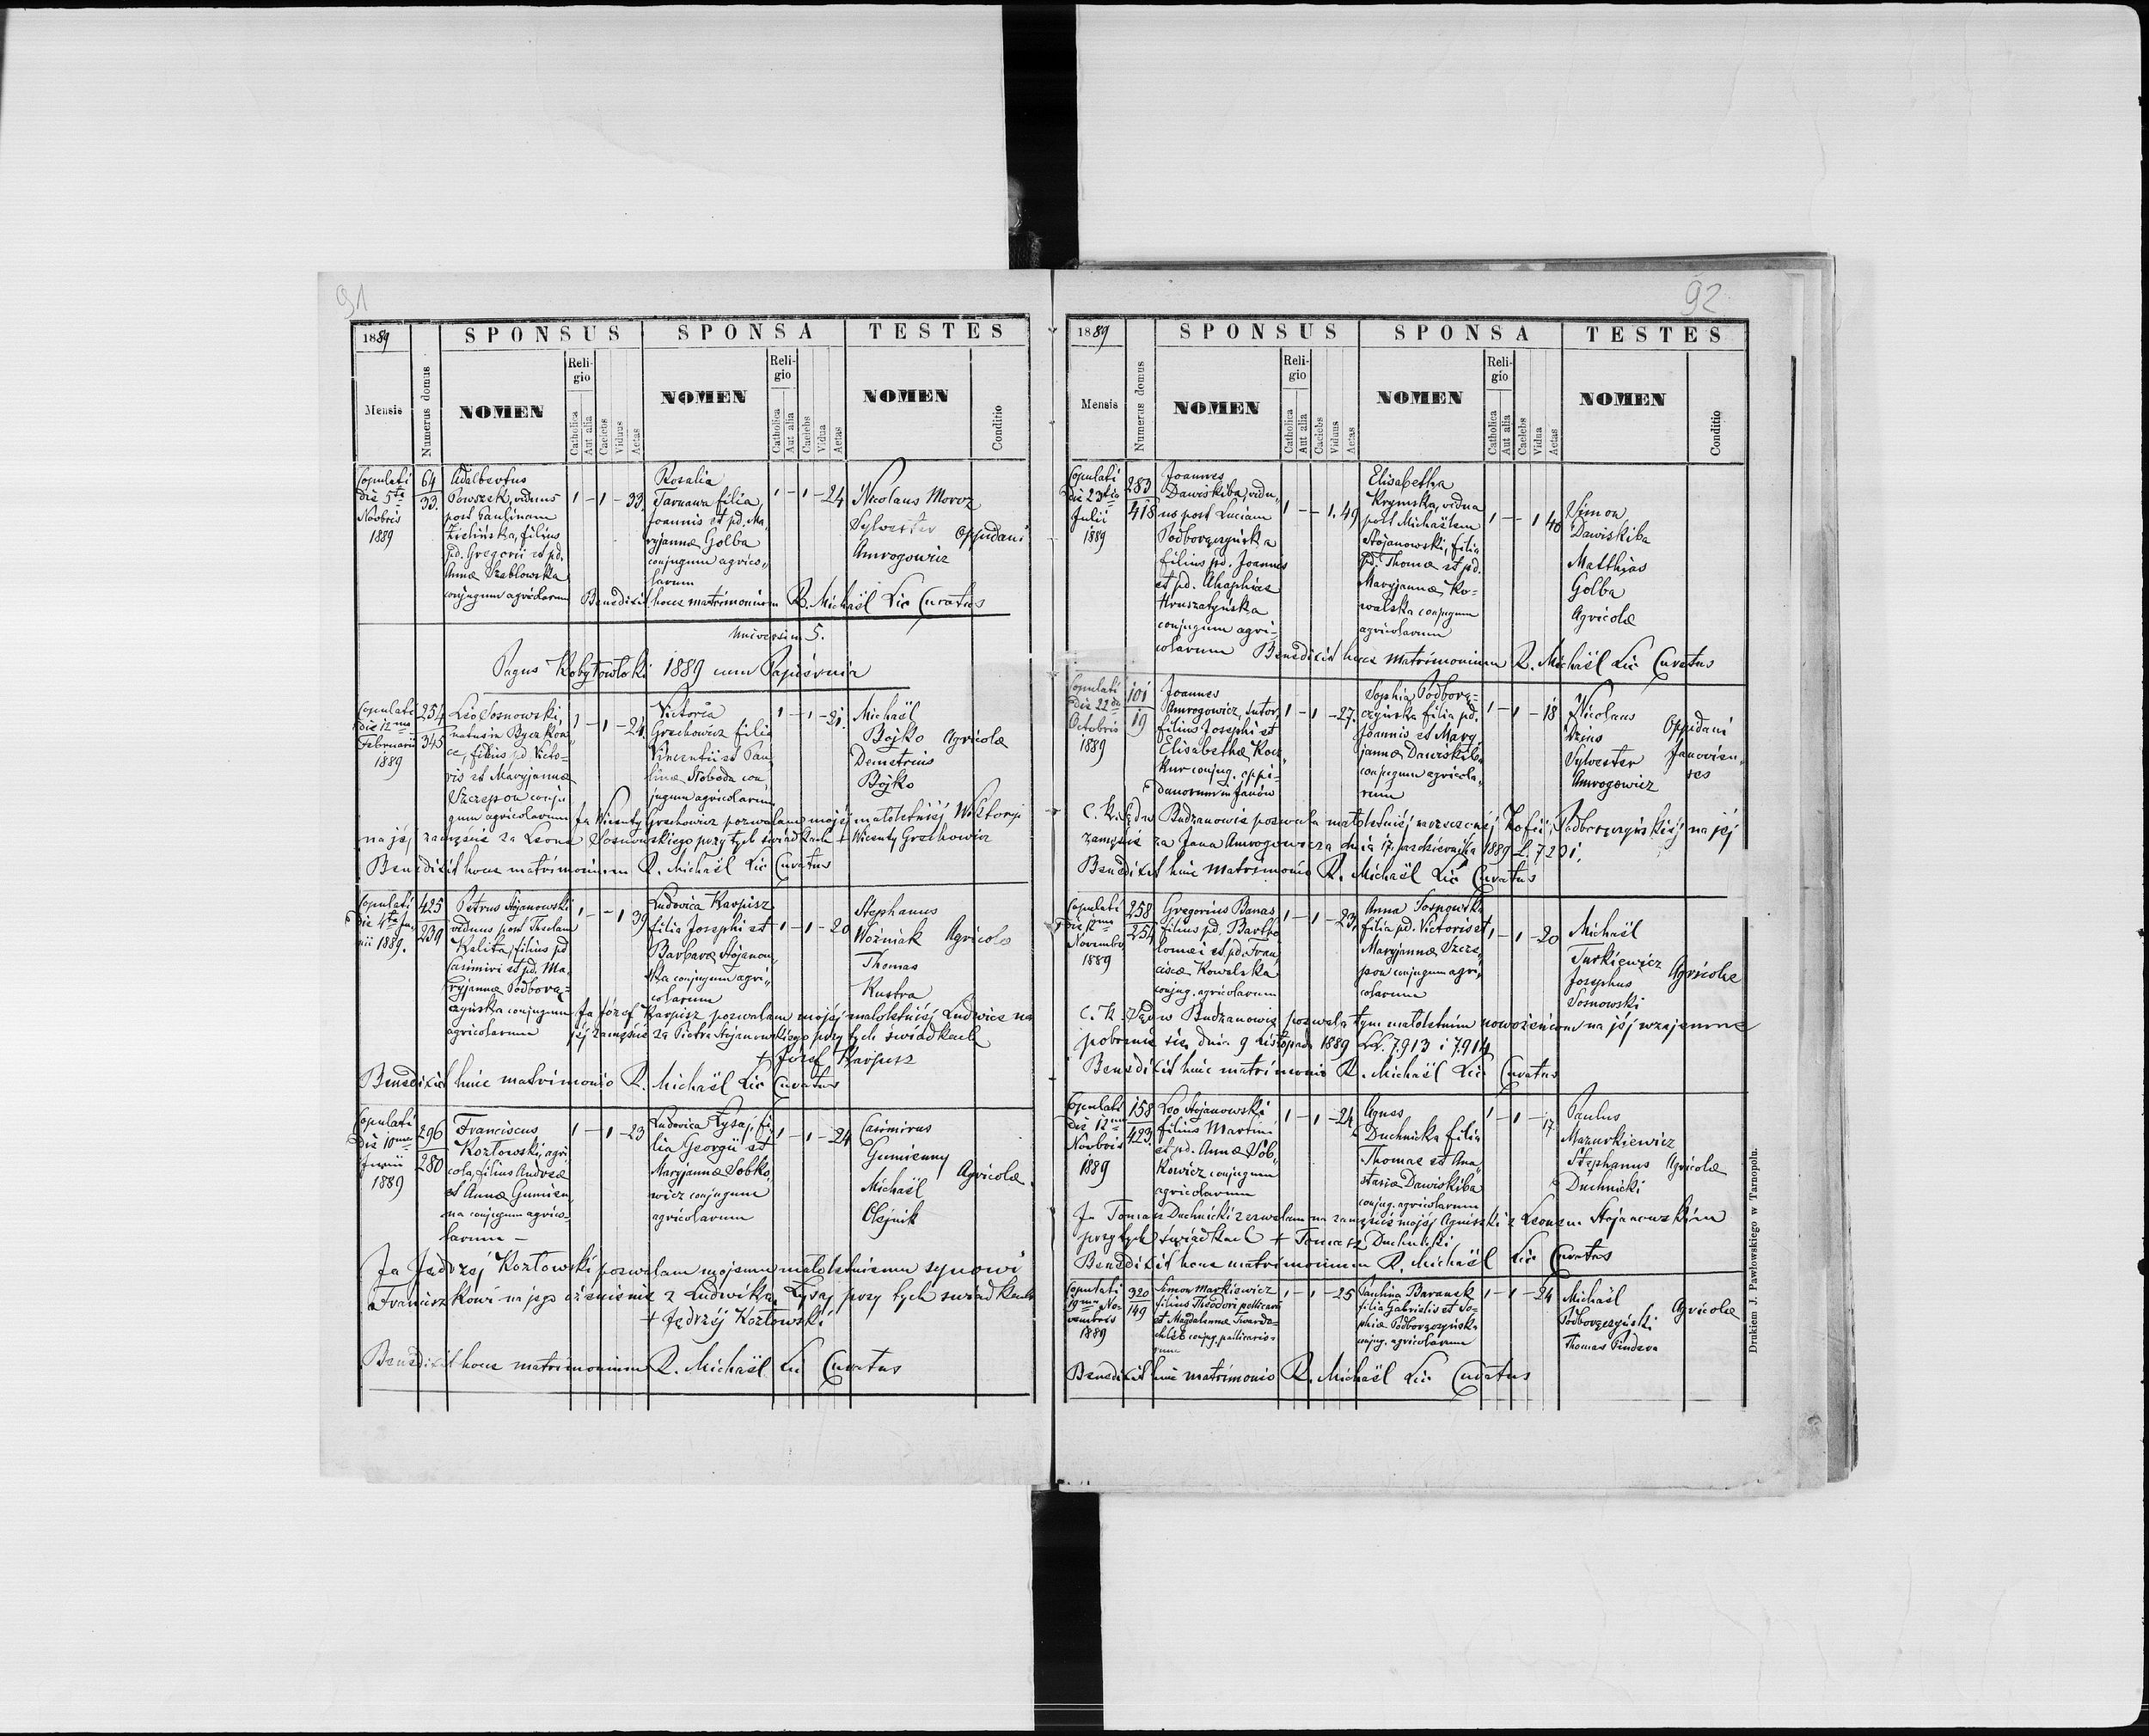 91
1889
SPONSUS
SPONSA
TESTES
Mensis
Numerus domus
NOMEN
Religio
Catholica
Aut alia
Caelebs
Viduus
Aetas
NOMEN
Religio
Catholica
Aut alia
Caelebs
Vidua
Aetas
NOMEN
Conditio
Copulati
die 5ta
Novbris
1889
64
33.
Adalbertus
Powszek, viduus
post Paulinam
Zielińska, filius
pd. Gregorii et pd.
Annæ Szablowska
conjugum agricolarum
1 - 1 - 33
Rosalia
Tarnawa filia
Joannis et pd. Ma„
ryjannæ Golba
conjugum agrico„
larum
1 - 1 - 24
Nicolaus Moroz
Sylvester
Amrogowicz
Oppidani
Benedixit hocce matrimonium R. Michaël Lic Curatus
Universim 5.
Pagus Kobyłowłoki 1889 cum Papiernia
Copulati
die 12ma
Februarii
1889
254
345
Leo Sosnowski,
natus in Byczkow„
ce, filius pd. Victo-
ris et Maryjannæ
Szczepon conju
gum agricolarum
1 - 1 - 24
Victoria
Grechowicz filia
Vincentii et Pau
linæ Słoboda con
jugum agricolarum
1 - 1 - 21.
Michaël
Bojko
Demetrius
Bojko
Agricolæ
Ja Wicenty Grechowicz pozwalam mojej małoletniej Wiktoryi
na jej zamęście za Leona Sosnowskiego przy tych świadkach + Wicenty Grechowicz
Benedixit hocce matrimonium R. Michaël Lic Curatus
Copulati
die 4ta Ju
nii 1889.
425
239
Petrus Stojanowski
viduus post Theclam
Kalita, filius pd
Casimiri et pd. Ma
ryjannæ Podborą-
czyńska conjugum
agricolarum
1 - - 1 39
Ludovica Karpisz
filia Josephi et
Barbaræ Stojanow„
ska conjugum agri„
colarum
1 - 1 - 20
Stephanus
Woźniak
Thomas
Kustra
Agricolæ
Ja Józef Karpisz pozwalam mojej małoletniej Ludwice na
jej zamęście za Piotra Stojanowskiego przy tych świadkach
+ Józef Karpisz
Benedixit huic matrimonio R. Michaël Lic Curatus
Copulati
die 10ma
Junii
1889
296
280
Franciscus
Kozłowski, agri
cola, filius Andreæ
et Annæ Gumien
na conjugum agrico-
larum -
1 - 1 - 23
Ludovica Łysaj, fi„
lia Georgii et
Maryjannæ Sobko„
wicz conjugum
agricolarum
1 - 1 - 24
Casimirus
Gumienny
Michaël
Olejnik
Agricolæ.
Ja Jędrzej Kozłowski pozwalam mojemu małoletniemu synowi
Franciszkowi na jego ożenienie z Ludwiką Łysaj przy tych świadkach
+ Jędrzej Kozłowski
Benedixit hocce matrimonium R. Michaël Lic Curatus
92
1889
SPONSUS
SPONSA
TESTES
Mensis
Numerus domus
NOMEN
Religio
Catholica
Aut alia
Caelebs
Viduus
Aetas
NOMEN
Religio
Catholica
Aut alia
Caelebs
Vidua
Aetas
NOMEN
Conditio
Copulati
die 23tio
Julii
1889
283
418
Joannes
Dawiskiba, vidu„
us post Luciam
Podborączyńska
filius pd. Joannis
et pd. Ahaphiæ
Hruszatyńska
conjugum agri-
colarum
1 - - 1. 49
Elisabetha
Krymska, vidua
post Michaëlem
Stojanowski, filia
pd. Thomæ et pd.
Maryjannæ Ko-
walska conjugum
agricolarum
1 - - 1 40
Simon
Dawiskiba
Matthias
Golba
Agricolæ
Benedixit hocce matrimonium R. Michaël Lic Curatus
Copulati
die 22da
Octobris
1889
101
19
Joannes
Amrogowicz, sutor,
filius Josephi et
Elisabethæ Kocz
kur conjug. oppi-
danorum in Janów
1 - 1 - 27.
Sophia Podborą-
czyńska filia pd.
Joannis et Mary
jannæ Dawiskiba
conjugum agricola„
rum
1 - 1 - 18
Nicolaus
Dzius
Sylvester
Amrogowicz
Oppidani
Janovien„
ses
C. K. Sąd w Budzanowie pozwala małoletniej narzeczonej Zofii Podborączyńskiej na jej
zamęście za Jana Amrogowicza dnia 17. października 1889 L. 7201.
Benedixit huic matrimonio R. Michaël Lic Curatus
Copulati
die 12ma
Novembr
1889
258
254
Gregorius Banas
filius pd. Bartho
lomæi et pd. Fran
ciscæ Kowalska
conjug. agricolarum
1 - 1 - 23,
Anna Sosnowska
filia pd. Victoris et
Maryjannæ Szcze„
pon conjugum agri„
colarum
1 - 1 - 20
Michaël
Turkiewicz
Josephus
Sosnowski
Agricolæ
C. K. Sąd w Budzanowie pozwala tym małoletnim nowożeńcom na jej wzajemne
pobranie się dnia 9 listopada 1889 LL. 7913 i 7914
Benedixit huic matrimonio R. Michaël Lic Curatus
Copulati
die 12ma
Novbris
1889
158
423.
Leo Stojanowski
filius Martini
et pd. Annæ Sob„
kowicz conjugum
agricolarum
1 - 1 - 24
Agnes
Duchnicka filia
Thomae et Ana„
stasiæ Dawiskiba
conjug. agricolarum
1 - 1 - 17
Paulus
Mazurkiewicz
Stephanus
Duchnicki
Agricolæ
Ja Tomasz Duchnicki zezwalam na zamęście mojej Agnieszki z Leonem Stojanowskim
przy tych świadkach + Tomasz Duchnicki
Benedixit hocce matrimonium R. Michaël Lic Curatus
Copulati
19ma No
vembris
1889
320
149
Simon Markiewicz
filius Theodori pellicarii
et Magdalenæ Twardo-
chleb conjug. pellicario
rum
1 - 1 - 25
Paulina Baranek
filia Gabrielis et So-
phiæ Podborączyńska
conjug. agricolarum
1 - 1 - 24
Michaël
Podborączyński
Thomas Pindera
Agricolæ
Benedixit huic matrimonio R. Michaël Lic Curatus
Drukiem J. Pawłowskiego w Tarnopolu.